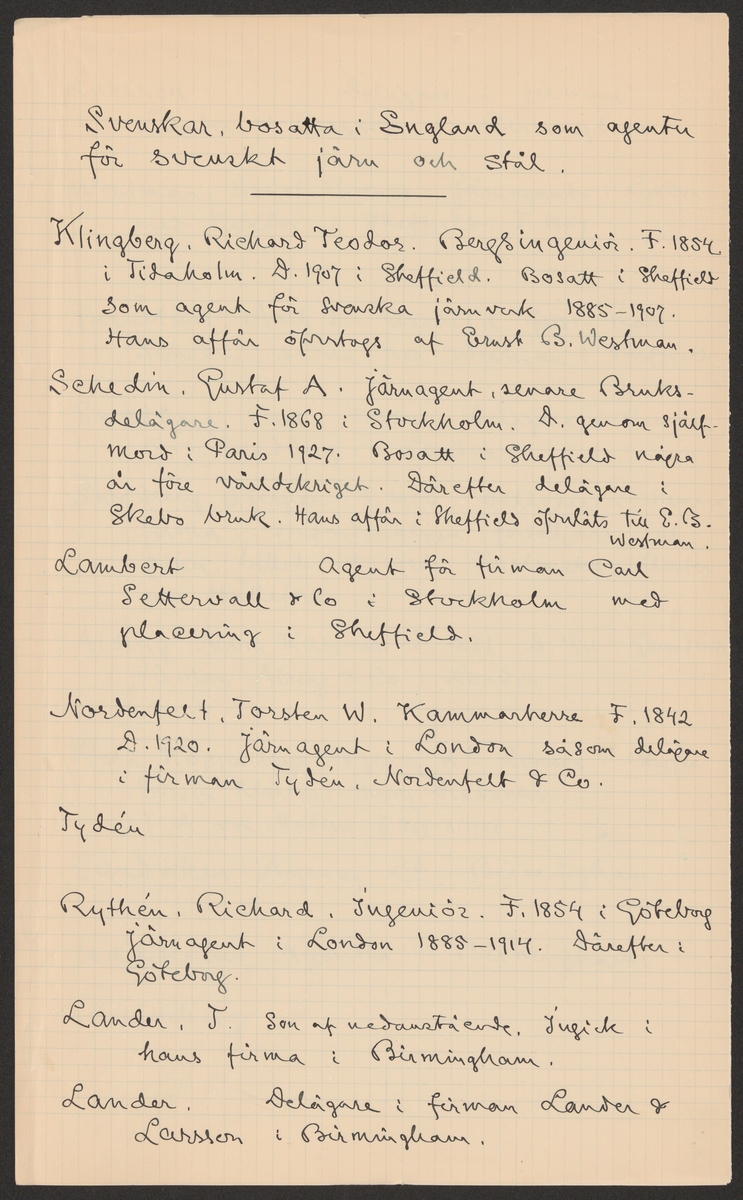 Svenskar, bosatta i England som agenter
för svenskt järn och stål.
Klingberg, Richard Teodor. Bergsingeniör. F. 1854
i Tidaholm. D. 1907 i Sheffield. Bosatt i Sheffield
som agent för svenska järnverk 1885-1907.
Hans affär öfvertogs af Ernst B. Westman.
Schedin, Gustaf A. Järnagent, senare Bruks-
delägare. F. 1868 i Stockholm. D. genom själf-
mord i Paris 1927. Bosatt i Sheffield några
år före världskriget. Därefter delägare i
Skebo bruk. Hans affär i Sheffield öfverläts till E. B.
Westman.
Lambert Agent för firman Carl
Settervall & Co i Stockholm med
placering i Sheffield.
Nordenfelt, Torsten W. Kammarherre F. 1842
D. 1920. Järnagent i London såsom delägare
i firman Tydén, Nordenfelt & Co.
Tydén
Rythén, Richard, Ingeniör. F. 1854 i Göteborg
Järnagent i London 1885-1914. Därefter i
Göteborg.
Lander, T. Son af nedanstående. Ingick i
hans firma i Birmingham.
Lander. Delägare i firman Lander &
Larsson i Birmingham.